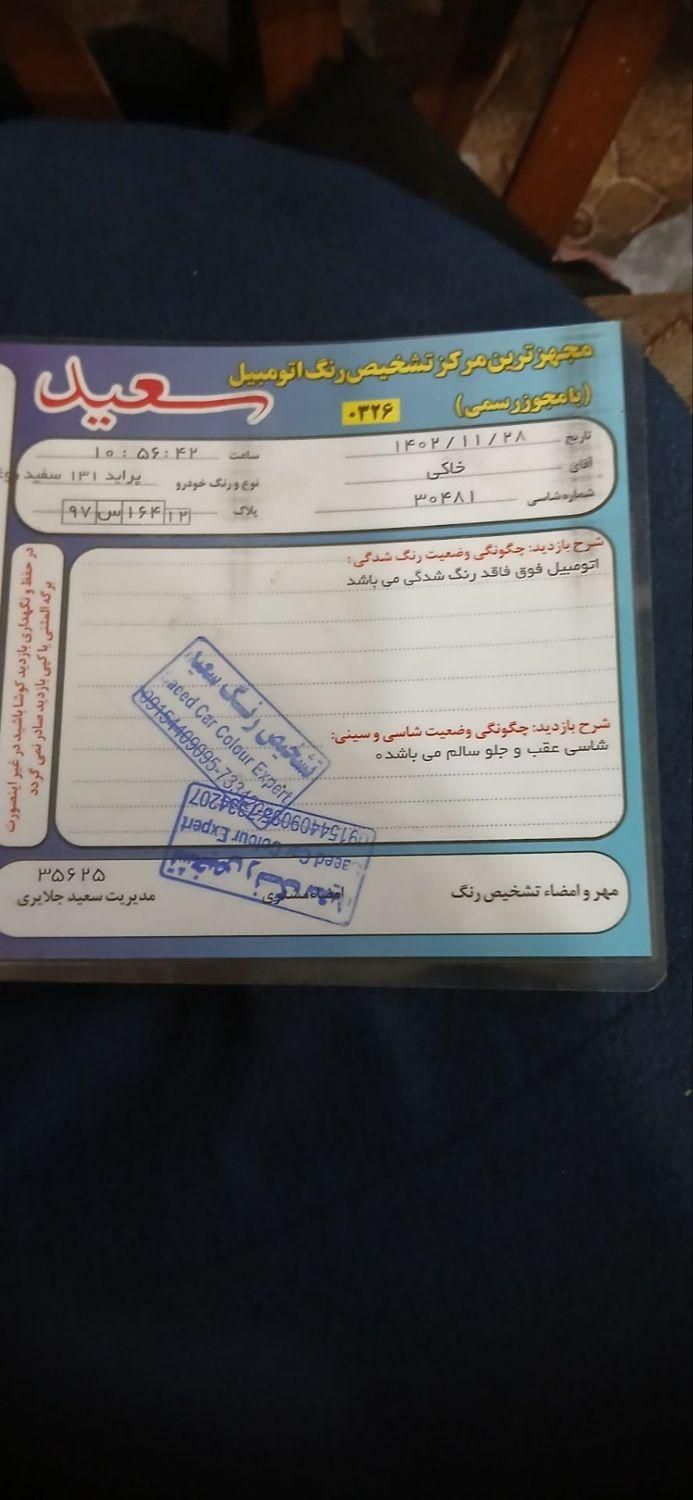 مجهزترین مرکز تشخیص رنگ اتومبیل
سعید
(با مجوز رسمی)
۰۳۲۶
تاریخ ۱۴۰۲/۱۱/۲۸
ساعت ۱۰:۵۶:۴۲
آقای خاکی
نوع و رنگ خودرو پراید ۱۳۱ سفید
شماره شاسی ۳۰۴۸۱
پلاک ۱۲ ۱۶۴ س ۹۷
شرح بازدید: چگونگی وضعیت رنگ شدگی:
اتومبیل فوق فاقد رنگ شدگی می باشد
شرح بازدید: چگونگی وضعیت شاسی و سینی:
شاسی عقب و جلو سالم می باشد۰
در حفظ و نگهداری بازدید کوشا باشید در غیر اینصورت
برگه المثنی یا کپی بازدید صادر نمی گردد
تشخیص رنگ سعید
aeed Car Colour Expert
09154409095-7334
تشخیص رنگ
aeed Car Colour Expert
مهر و امضاء تشخیص رنگ
امضاء مشتری
۳۵۶۲۵
مدیریت سعید جلایری